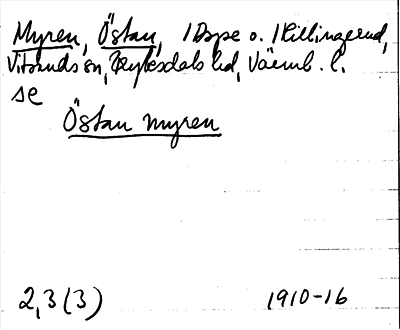 Myren, Östan, i Dype o. i Killingerud,
Vitsands sn, Fryksdals hd, Värml. l.
se
Östan myren
2,3 (3) 1910-16